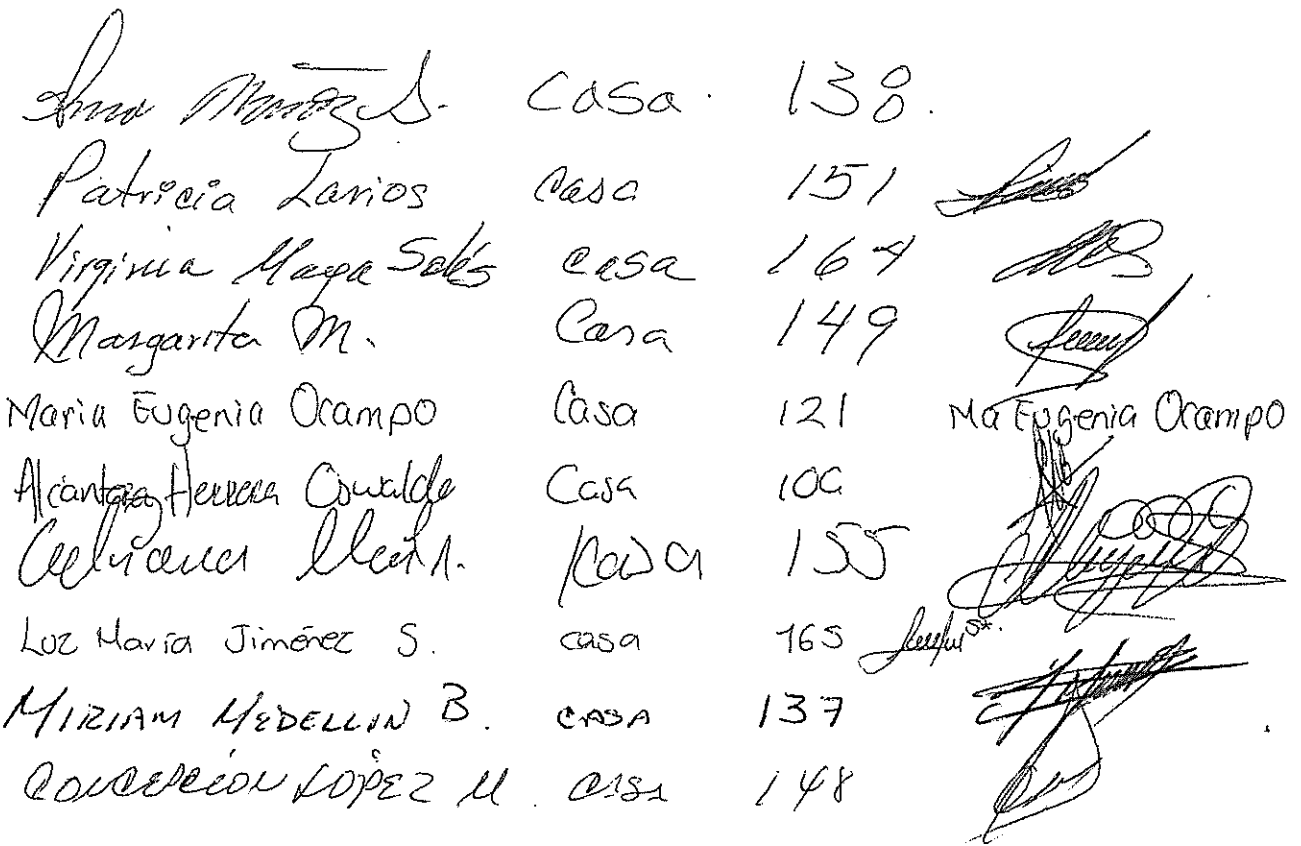 Muñoz S. Casa. 138.
Patricia Larios Casa 151
Virginia Maya Solís casa 164
Margarita M. Casa 149
Maria Eugenia Ocampo Casa 121 Ma Eugenia Ocampo
Alcantara Herrera Oswaldo Casa
Casa 155
Luz María Jiménez S. casa 165
MIRIAM MEDELLIN B. CASA 137
CONCEPCIÓN LOPEZ M. CASA 148